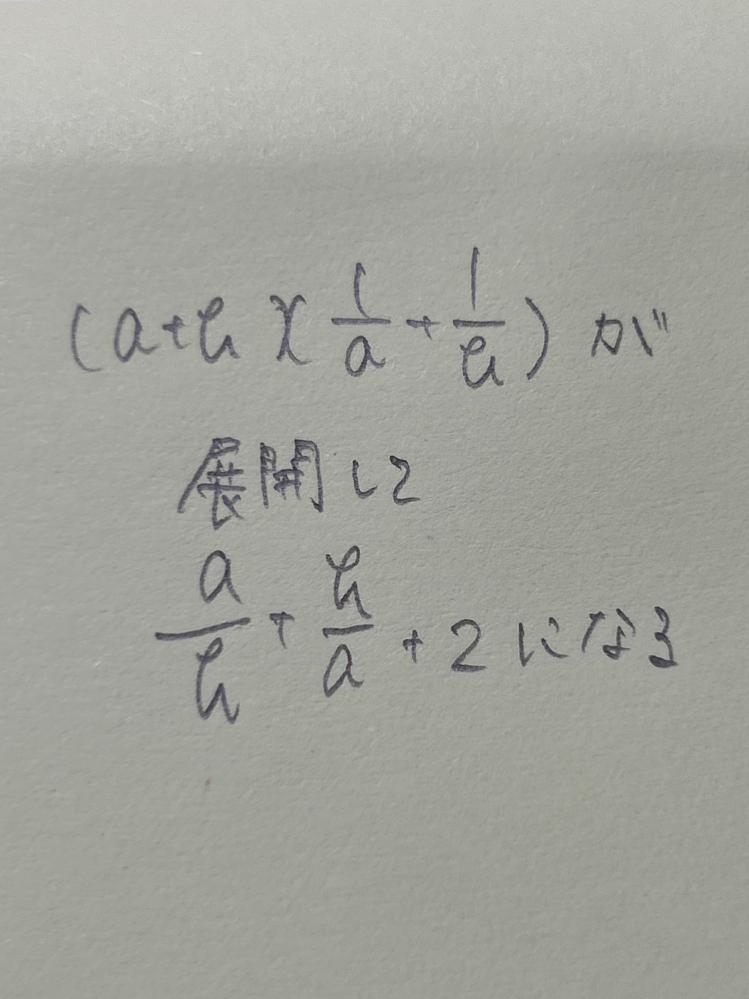 (a+b)(1/a+1/b)が
展開して
a/b+b/a+2になる